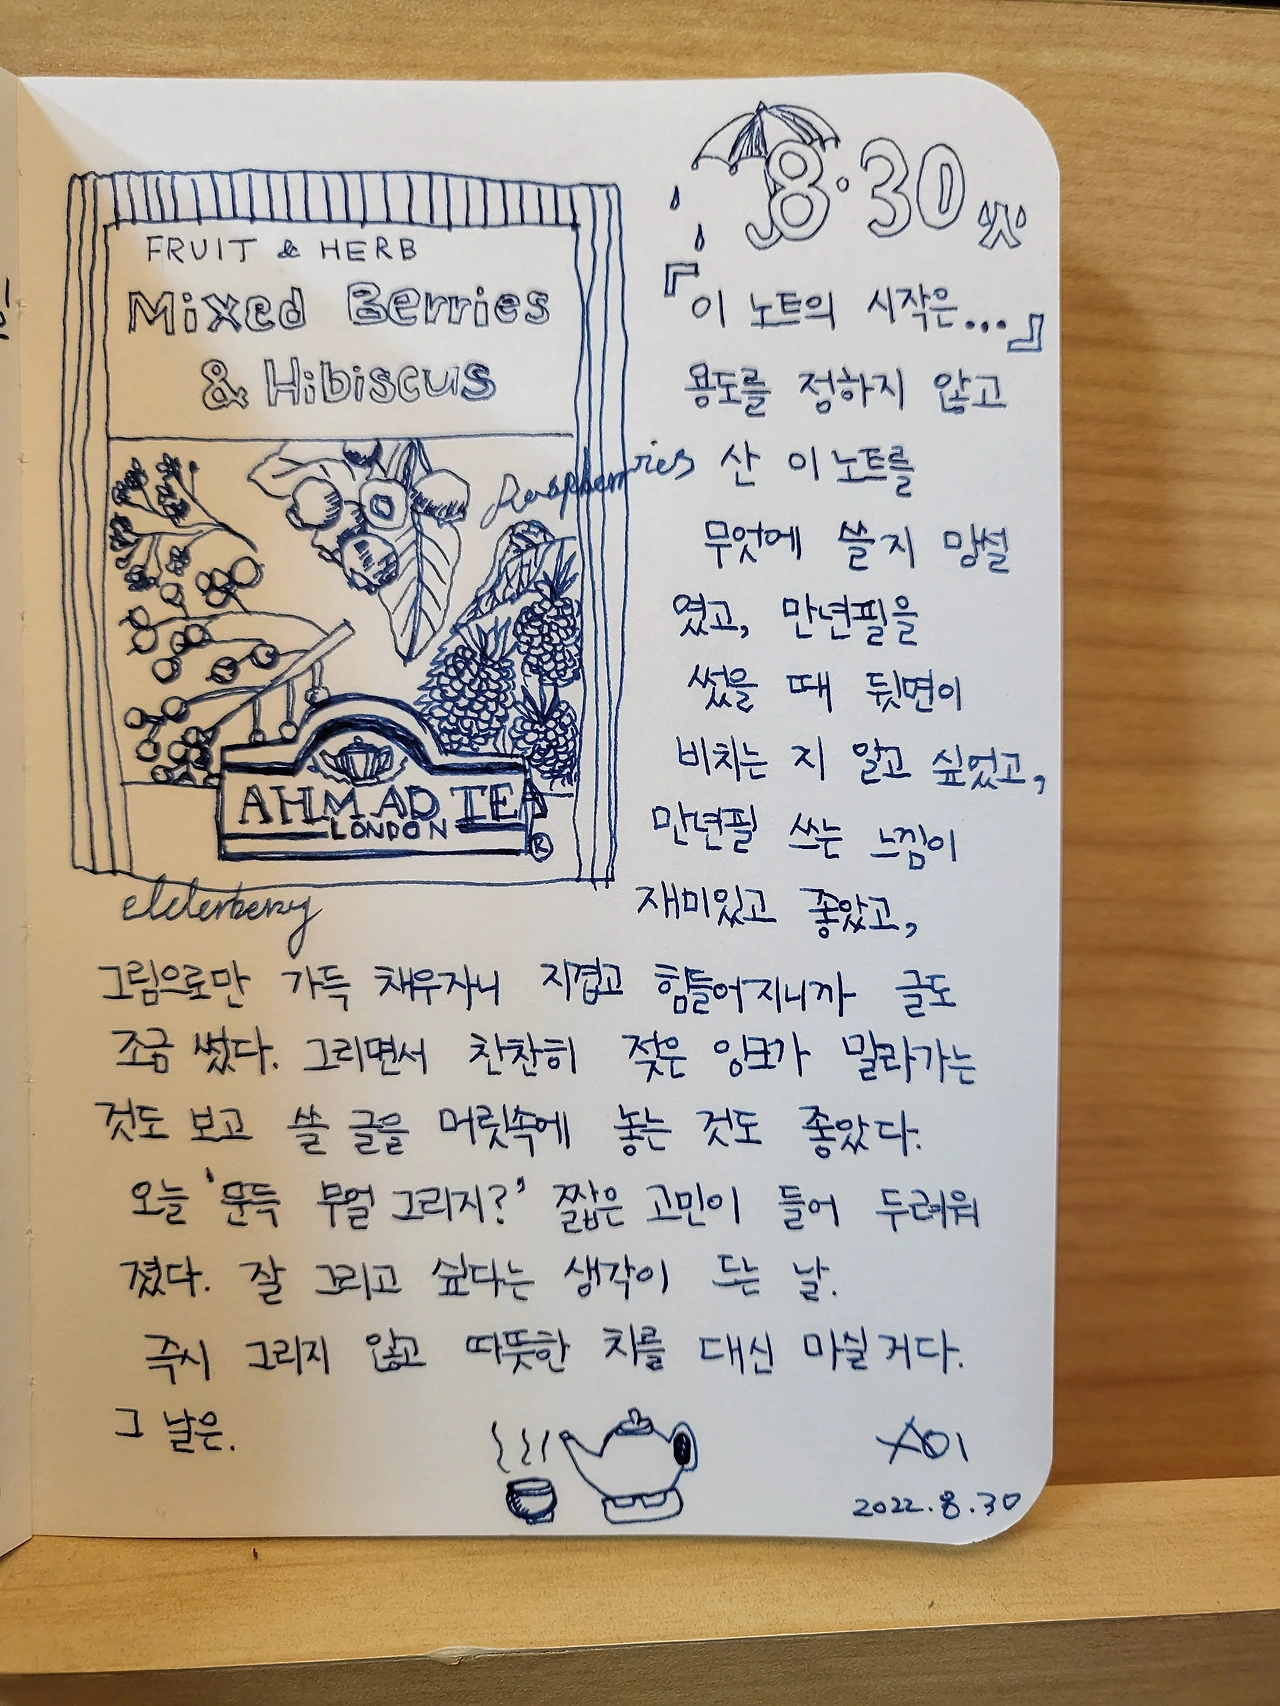 8·30 火
FRUIT & HERB
Mixed Berries
& Hibiscus
Raspberries
AHMAD TEA
LONDON
®
elderberry
『이 노트의 시작은...』
용도를 정하지 않고
산 이 노트를
무엇에 쓸지 망설
였고, 만년필을
썼을 때 뒷면이
비치는 지 알고 싶었고,
만년필 쓰는 느낌이
재미있고 좋았고,
그림으로만 가득 채우자니 지겹고 힘들어지니까 글도
조금 썼다. 그리면서 찬찬히 젖은 잉크가 말라가는
것도 보고 쓸 글을 머릿속에 놓는 것도 좋았다.
오늘 '문득 무얼 그리지?' 짧은 고민이 들어 두려워
졌다. 잘 그리고 싶다는 생각이 드는 날.
즉시 그리지 않고 따뜻한 차를 대신 마실거다.
그 날은.
2022.8.30